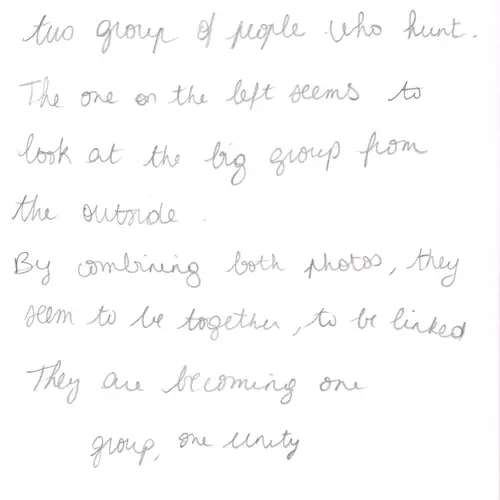 two group of people who hunt.
The one on the left seems to
look at the big group from
the outside.
By combining both photos, they
seem to be together, to be linked
They are becoming one
group, one unity